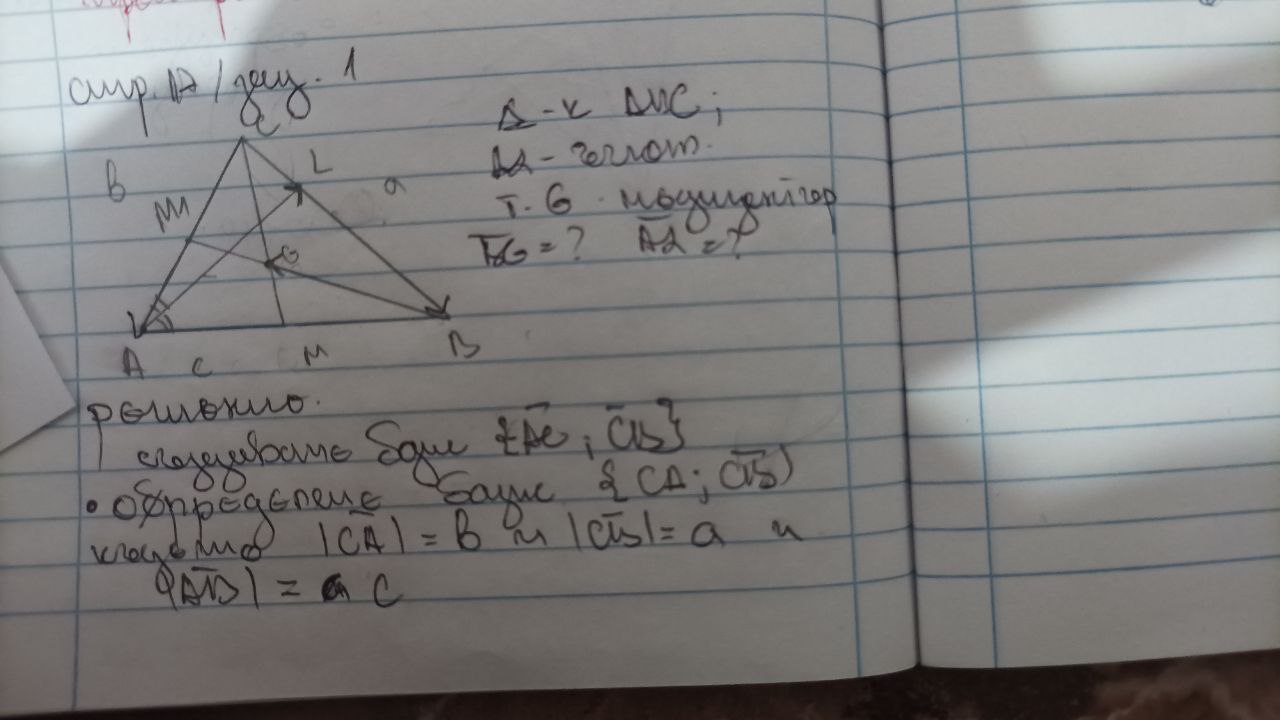 стр. 17 / зад. 1
C
L
B
a
M1
G
A
C
M
B
Δ-к ABC;
AL - ъглоп.
т. G - медицентър
BG = ? AL = ?
решение.
създаваме базис {AC; CB}
• определяме базис {CA; CB}
където |CA| = B и |CB| = a и
|AB| = C